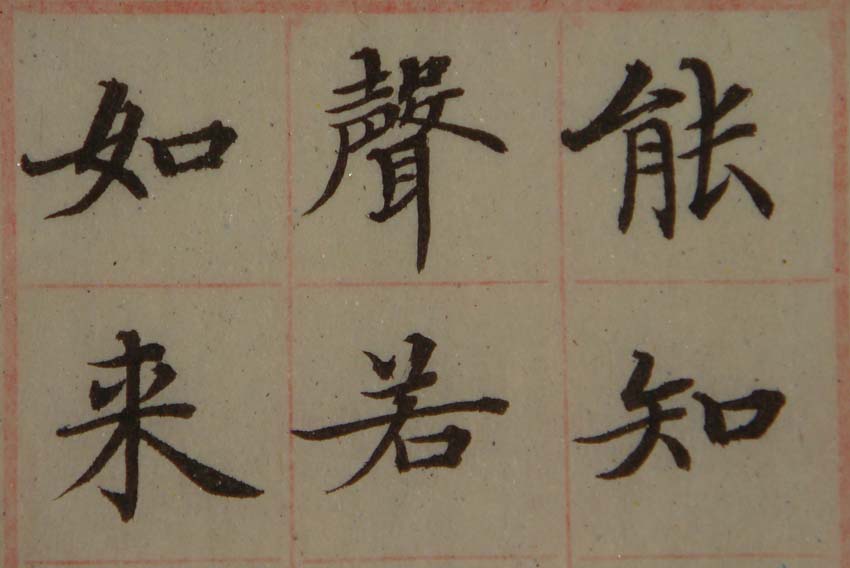 能知
聲若
如来